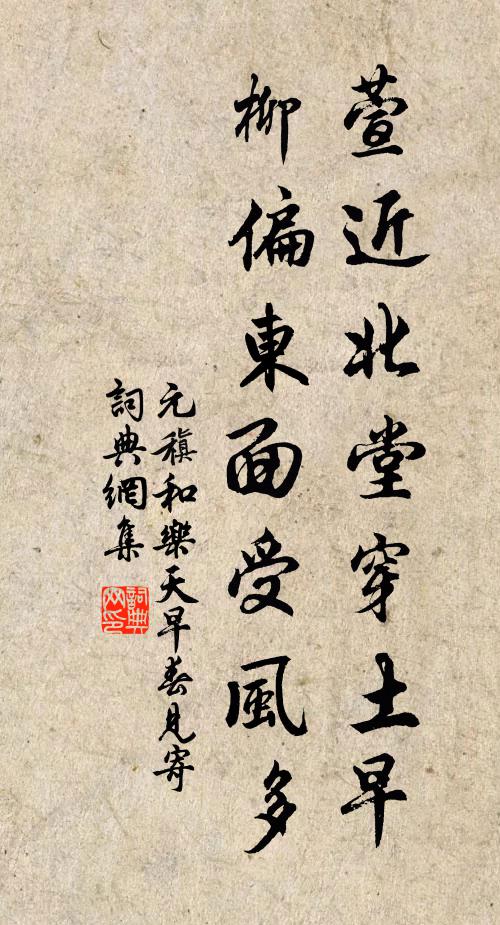 萱近北堂穿土早
柳偏東面受風多
元稹和樂天早春見寄
詞典網集
詞典網印